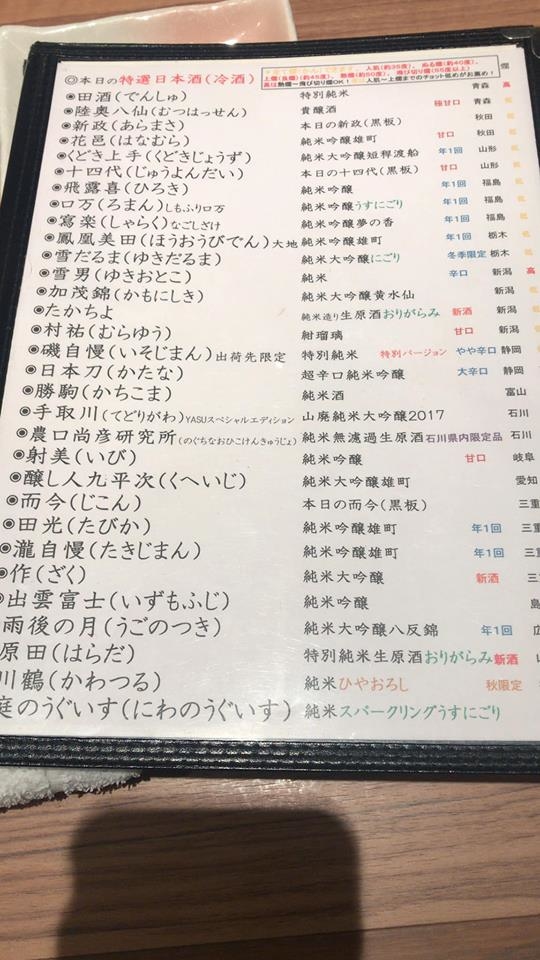 ◎本日の特選日本酒(冷酒) 人肌(約35度)、ぬる燗(約40度)、 燗
上燗(約45度)、熱燗(約50度)、飛び切り燗(55度以上)
高は熱燗～飛び切り燗OK! 人肌～上燗までのチョット低めがお薦め!
◉田酒(でんしゅ) 特別純米 青森 高
◉陸奥八仙(むつはっせん) 貴醸酒 極甘口 青森 低
◉新政(あらまさ) 本日の新政(黒板) 秋田 低
◉花邑(はなむら) 純米吟醸雄町 甘口 秋田 低
◉くどき上手(くどきじょうず) 純米大吟醸短稈渡船 年1回 山形 低
◉十四代(じゅうよんだい) 本日の十四代(黒板) 甘口 山形 低
◉飛露喜(ひろき) 純米吟醸 年1回 福島 低
◉口万(ろまん)しもふり口万 純米吟醸うすにごり 年1回 福島 低
◉寫楽(しゃらく)なごしざけ 純米吟醸夢の香 年1回 福島 低
◉鳳凰美田(ほうおうびでん)大地 純米吟醸雄町 年1回 栃木 低
◉雪だるま(ゆきだるま) 純米大吟醸にごり 冬季限定 栃木 低
◉雪男(ゆきおとこ) 純米 辛口 新潟 高
◉加茂錦(かもにしき) 純米大吟醸黄水仙 新潟 低
◉たかちよ 純米造り生原酒おりがらみ 新酒 新潟 低
◉村祐(むらゆう) 紺瑠璃 甘口 新潟 低
◉磯自慢(いそじまん)出荷先限定 特別純米 特別バージョン やや辛口 静岡 低
◉日本刀(かたな) 超辛口純米吟醸 大辛口 静岡 低
◉勝駒(かちこま) 純米酒 富山
◉手取川(てどりがわ)YASUスペシャルエディション 山廃純米大吟醸2017 石川
◉農口尚彦研究所(のぐちなおひこけんきゅうじょ) 純米無濾過生原酒 石川県内限定品 石川
◉射美(いび) 純米吟醸 甘口 岐阜
◉醸し人九平次(くへいじ) 純米大吟醸雄町 愛知
◉而今(じこん) 本日の而今(黒板) 三重
◉田光(たびか) 純米吟醸雄町 年1回 三重
◉瀧自慢(たきじまん) 純米吟醸雄町 年1回
◉作(ざく) 純米大吟醸 新酒
◉出雲富士(いずもふじ) 純米吟醸 島
雨後の月(うごのつき) 純米大吟醸八反錦 年1回 広
原田(はらだ) 特別純米生原酒おりがらみ 新酒 山
川鶴(かわつる) 純米ひやおろし 秋限定
庭のうぐいす(にわのうぐいす) 純米スパークリングうすにごり